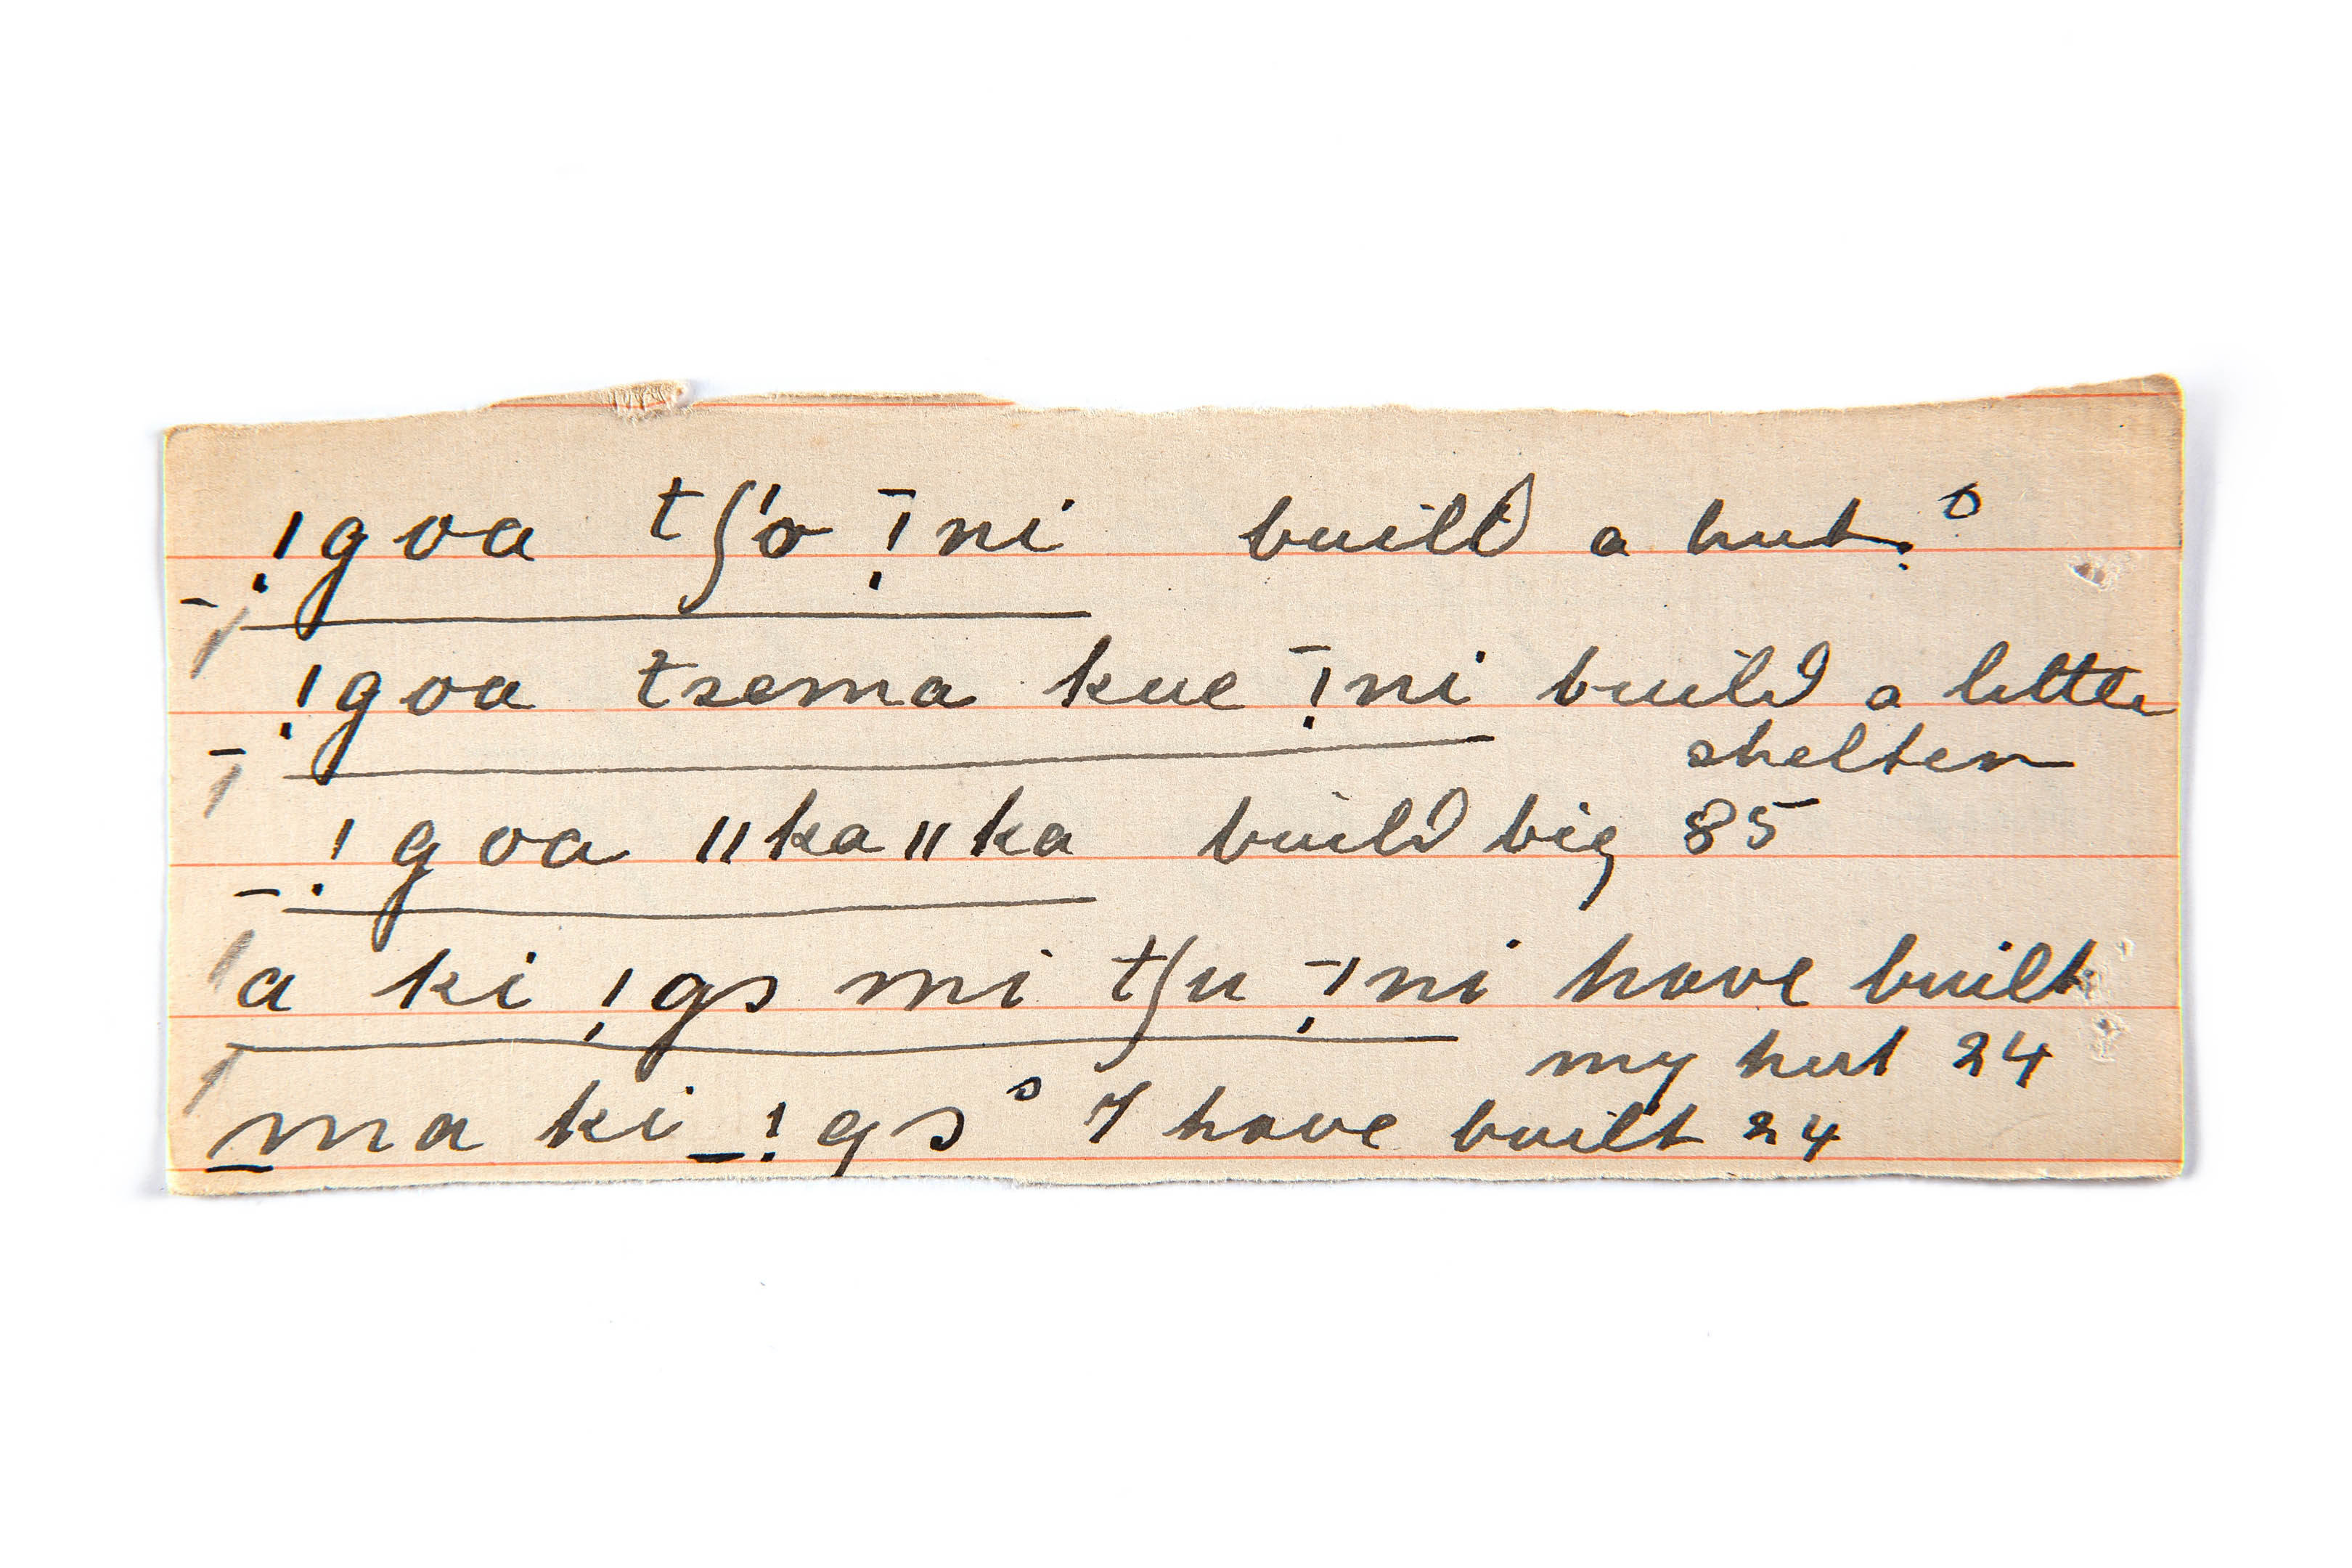 !goa tʃ'o !ni build a hut.
!goa tsema kue !ni build a little
shelter
!goa ǁkaǁka build big 85
a ki !gɔ mi tʃu !ni have built
my hut 24
ma ki !gɔ I have built 24